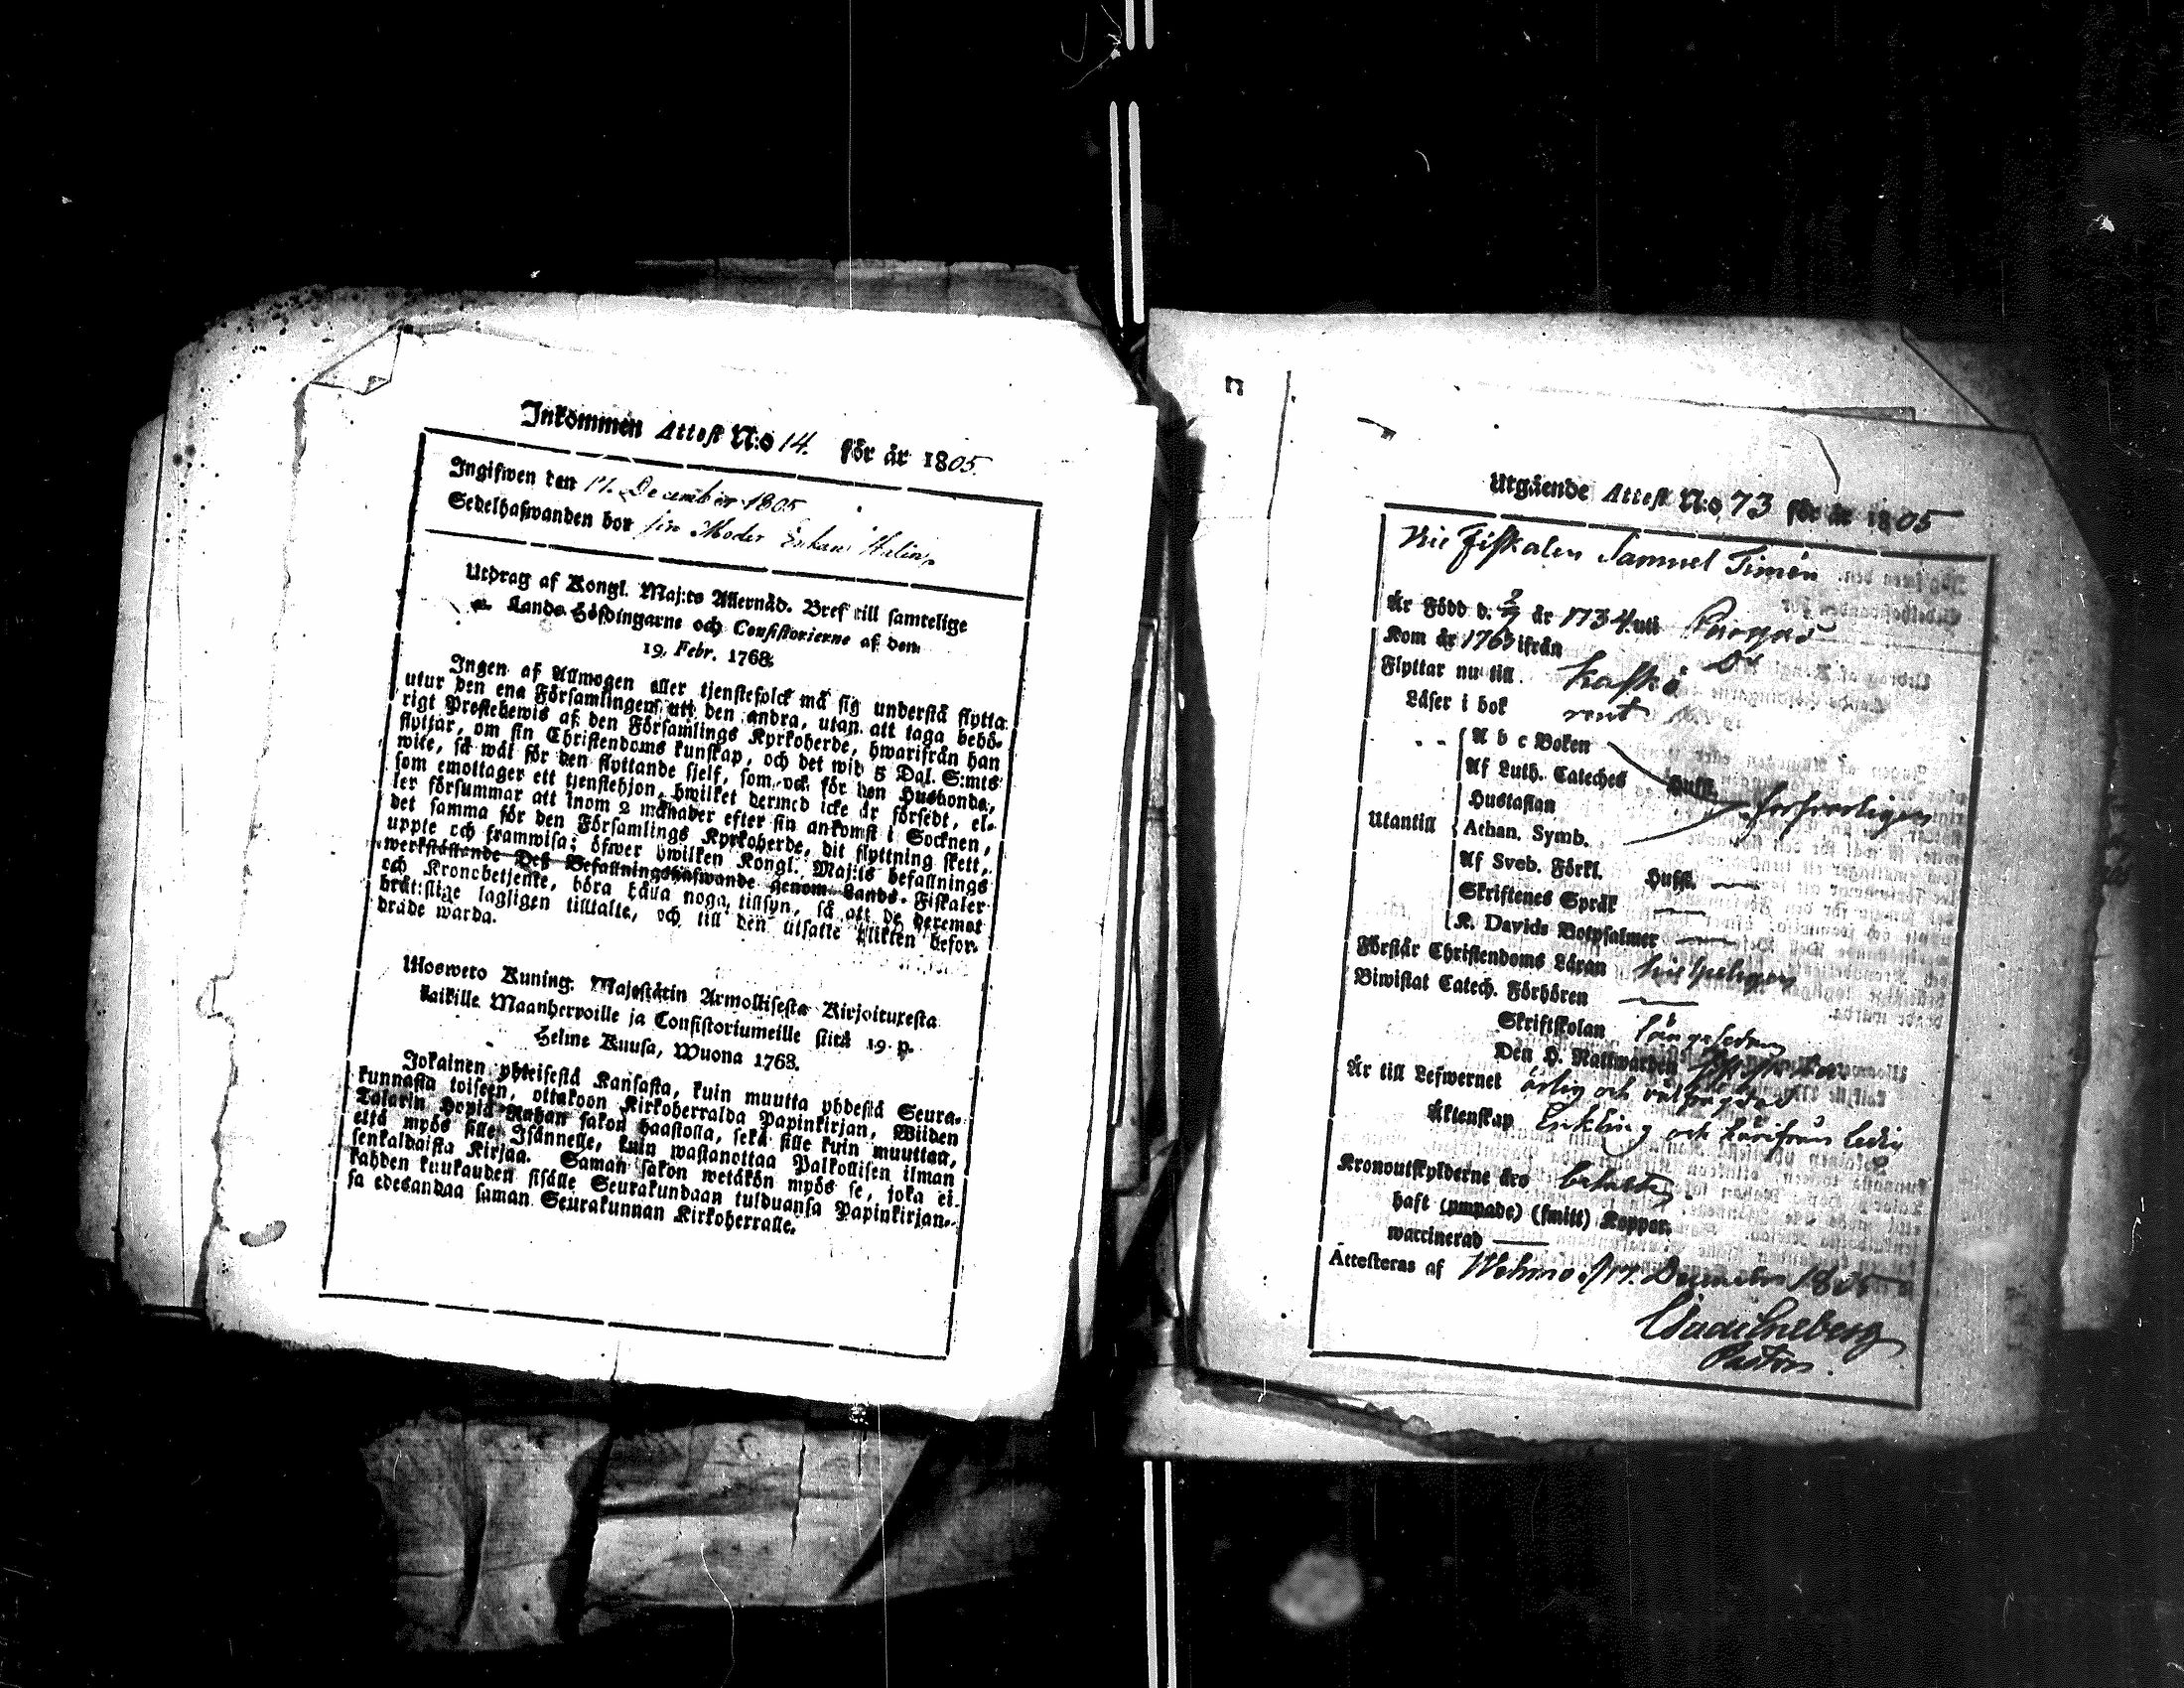 Inkommen Attest N:o 14. för år 1805.
Ingifwen den 17. December 1805
Sedelhafwanden bor Moder
Utdrag af Kongl. Maj:ts Allernåd. Bref till samtelige
Lands-Höfdingarne och Consistorierne af den
19. Febr. 1768.
Ingen af Allmogen eller tjenstefolck må sig understå flytta
utur den ena Församlingen uti den andra, utan att taga behö-
rigt Prestebewis af den Församlings Kyrkoherde, hwarifrån han
flyttar, om sin Christendoms kunskap, och det wid 5 Dal. S:mts
wite, så wäl för den flyttande sjelf, som ock för den Husbonde,
som emottager ett tjenstehjon, hwilket dermed icke är försedt, el-
ler försummar att inom 2 månader efter sin ankomst i Socknen,
det samma för den Församlings Kyrkoherde, dit flyttning skett,
uppte och framwisa; öfwer hwilken Kongl. Maj:ts befallnings
werkställande Deß Befallningshafwande genom Lands-Fiskaler
och Kronobetjente, böra hålla noga tillsyn, så att de deremot
bråtslige lagligen tilltalte, och till den utsatte plikten befor-
drade warda.
Uloswetö Kuning. Majestätin Armollisesta Kirjoituxesta
kaikille Maanherroille ja Consistoriumeille siitä 19. p.
Helme Kuusa, Wuona 1768.
Jokainen yhteisestä Kansasta, kuin muutta yhdestä Seura-
kunnasta toiseen, ottakoon Kirkoherralda Papinkirjan, Wiiden
Talarin Hopia Rahan sakon haastolla, sekä sille kuin muuttaa,
että myös sille Isännelle, kuin wastanottaa Palkollisen ilman
senkaldaista Kirjaa. Saman sakon wetäkön myös se, joka ei
kahden kuukauden sisälle Seurakundaan tulduansa Papinkirjan-
sa edesandaa saman Seurakunnan Kirkoherralle.
Utgående Attest N:o 73 för år 1805
Vic Fiskalen Samuel Timén
Är Född d. 2/9 år 1734 uti Pargas
Kom år 1763 ifrån Do
Flyttar nu till Kaskö
Läser i bok rent
A b c Boken
Af Luth. Cateches Hufst.
Hustaflan försvarligen
Utantill Athan. Symb.
Af Sveb. Förkl. Hufst.
Skriftenes Språk
K. Davids Botpsalmer
Förstår Christendoms Läran hielpeligen
Biwistat Catech. Förhören
Skriftskolan längesedan
Den H. Nattwarden
Är till Lefwernet ärlig och
Äktenskap Enkling och härifrån ledig
Kronoutskylderne äro betalte
haft (ympade) (smitt) Koppor.
waccinerad
Attesteras af Wehmo d 17. December 1805
Pastor.